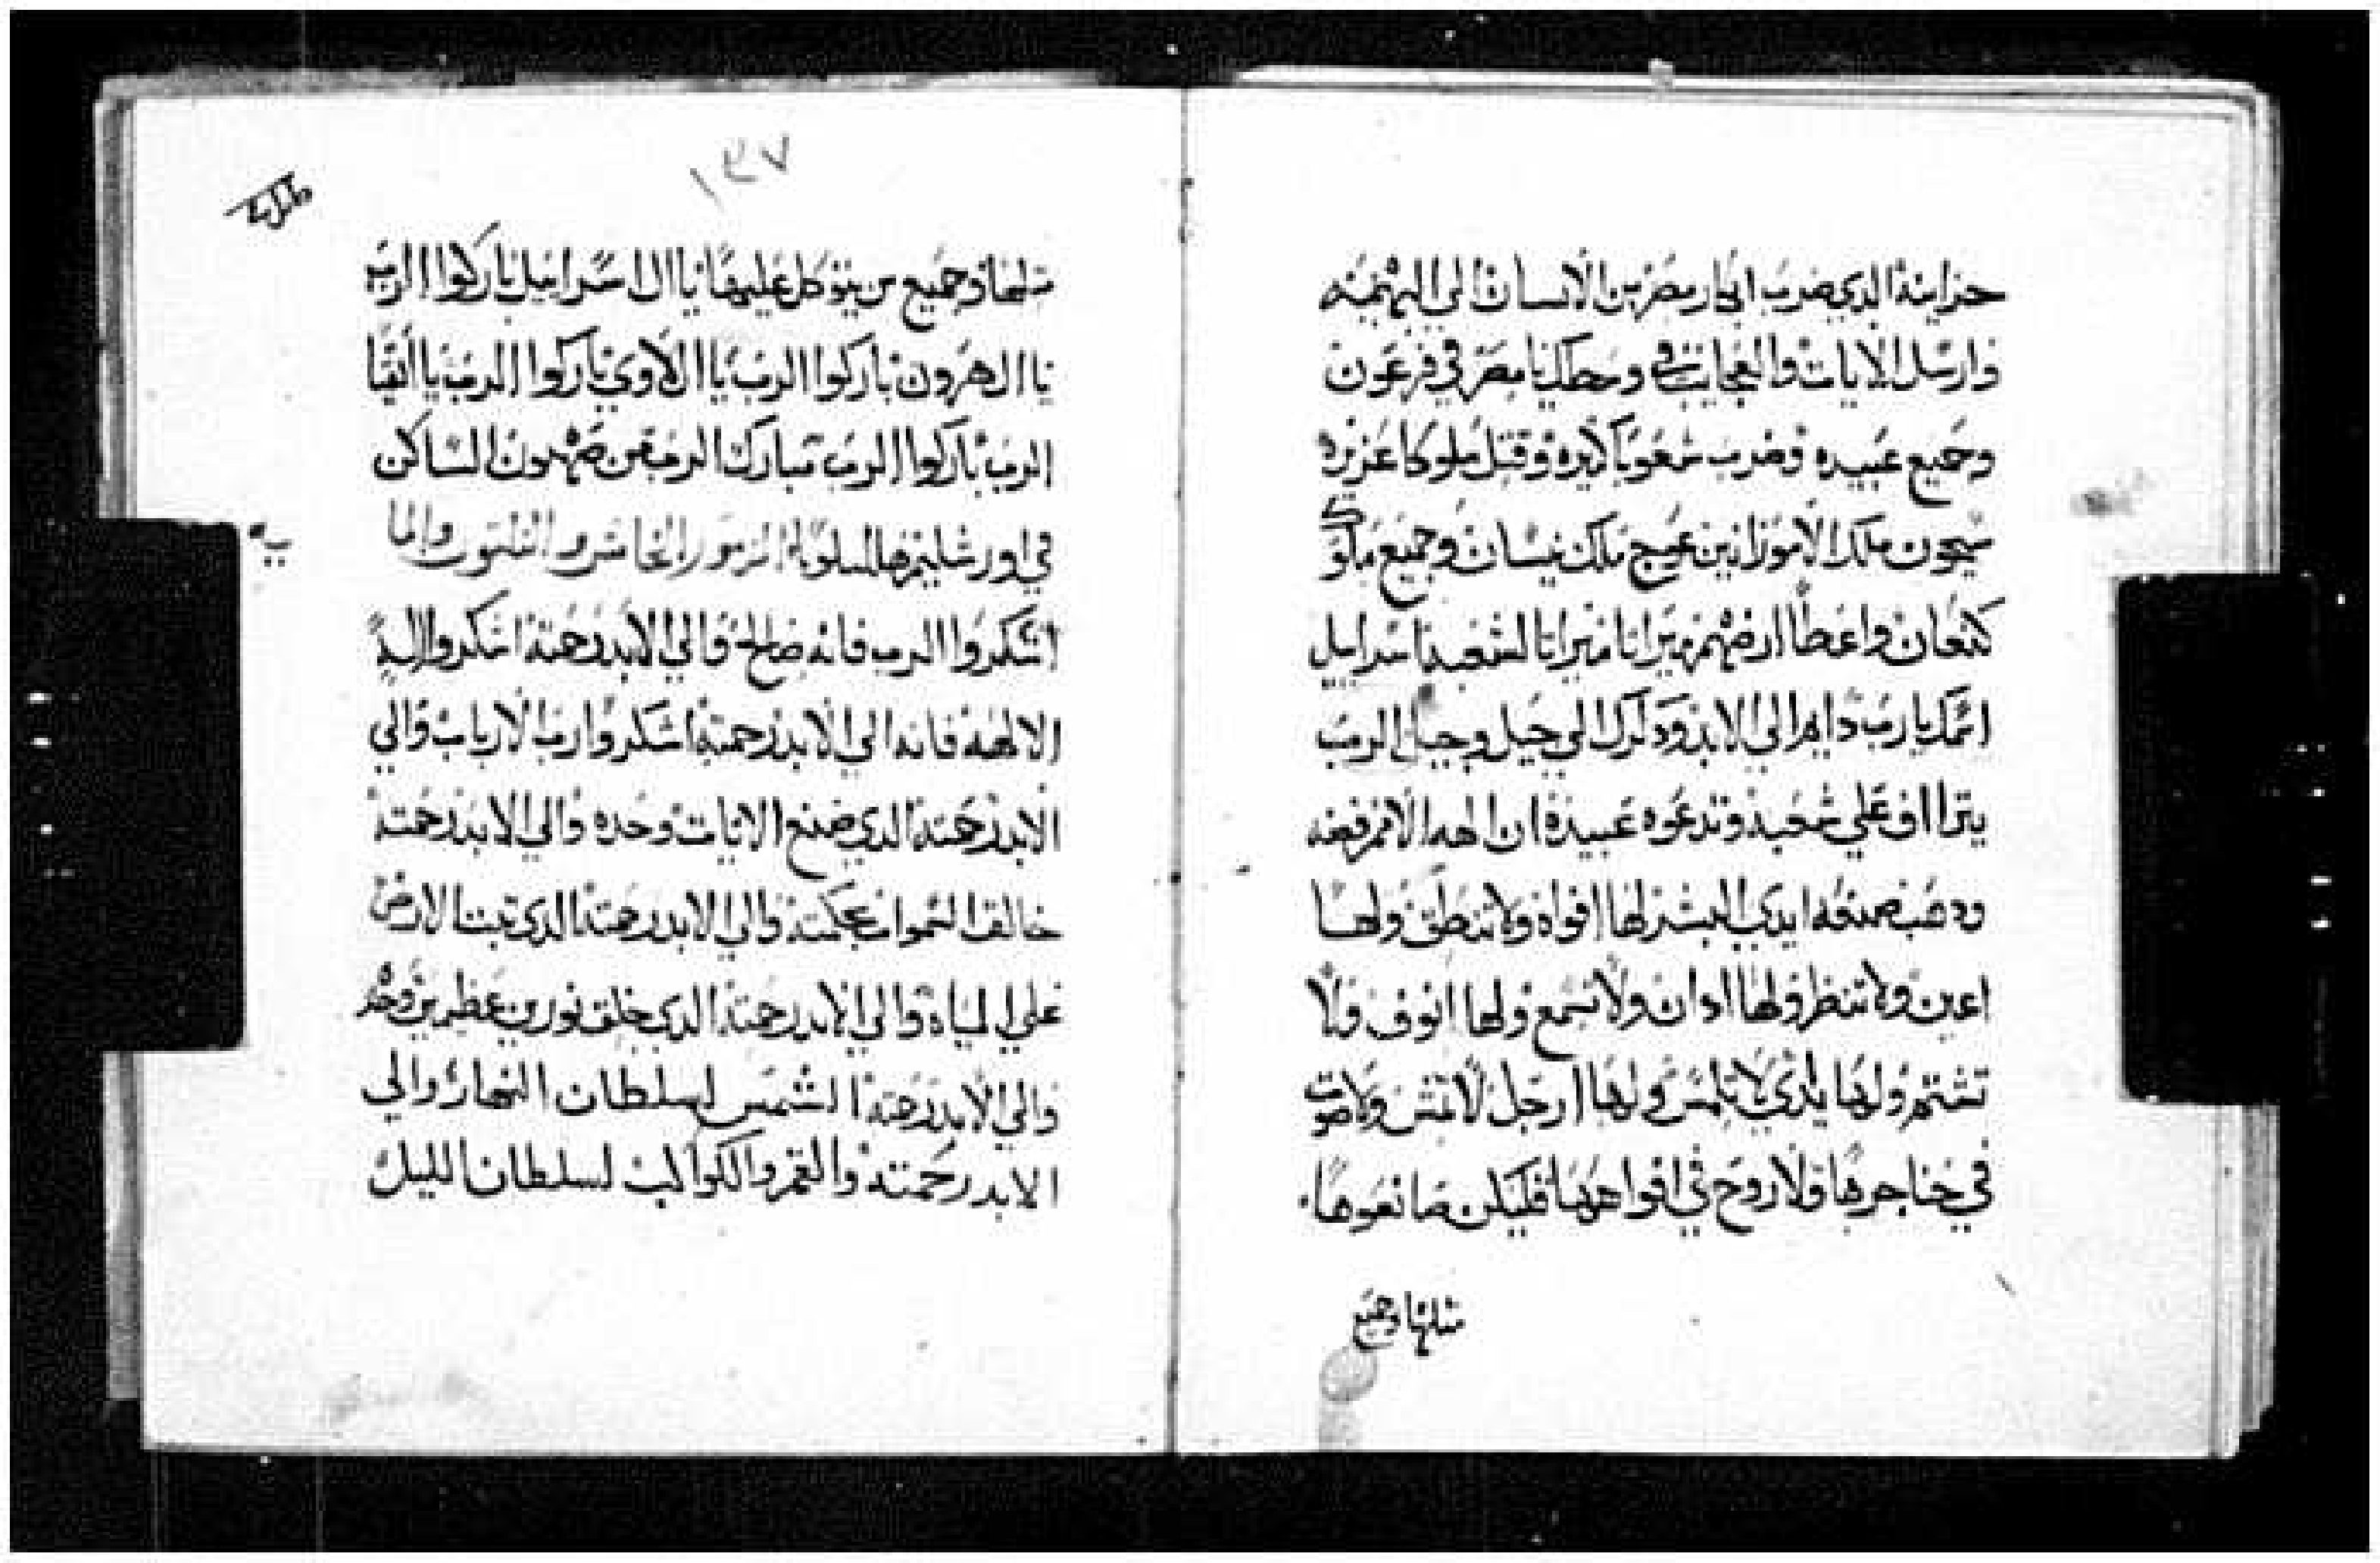 خزاينه الذي ضرب ابكار مصر من الانسان الي البهيمه
وارسل الايات والعجايب في وسطك يا مصر في فرعون
وجميع عبيده وضرب شعوبا كثيره وقتل ملوكا عزيزه
سيحون ملك الامورانيين عوج ملك نيسان وجميع ملوك
كنعان واعطا ارضهم ميراثا ميراثا لشعبه اسراييل
اسمك يارب دايم الي الابد وذكرك الي جيل وجيل الرب
يتراف علي شعبه وتدعوه عبيده ان الهه الامم فضه
وذهب صنعه ايدي البشر لها افواه ولا تنطق ولها
اعين ولا تنظر ولها اذان ولا تسمع ولها انوف فلا
تشتم ولها ايدي لا تلمس ولها ارجل لا تمش ولا صوت
في حناجرها ولا روح في افواهها فليكن صانعوها
مثلها وجميع
١٣٧
مثلها وجميع من يتوكل عليها يا ال اسراييل باركوا الرب
يا ال هرون باركوا الرب يا ال لاوي باركوا الرب يا اتقيا
الرب باركوا الرب تبارك الرب من صهيون الساكن
في اورشليم هللويا المزمور الخامس و الثلثون والما
اشكروا الرب فانه صالح والي الابد رحمته اشكروا اله
الالهه فانه الي الابد رحمته اشكروا رب الارباب والي
الابد رحمته الذي صنع الايات وحده والي الابد رحمته
خالق السموات بحكمته والي الابد رحمته الذي ثبت الارض
علي المياه والي الابد رحمته الذي خلق نورين عظيمين وحده
والي الابد رحمته الشمس لسلطان النهار والي
الابد رحمته والقمر والكواكب لسلطان الليل